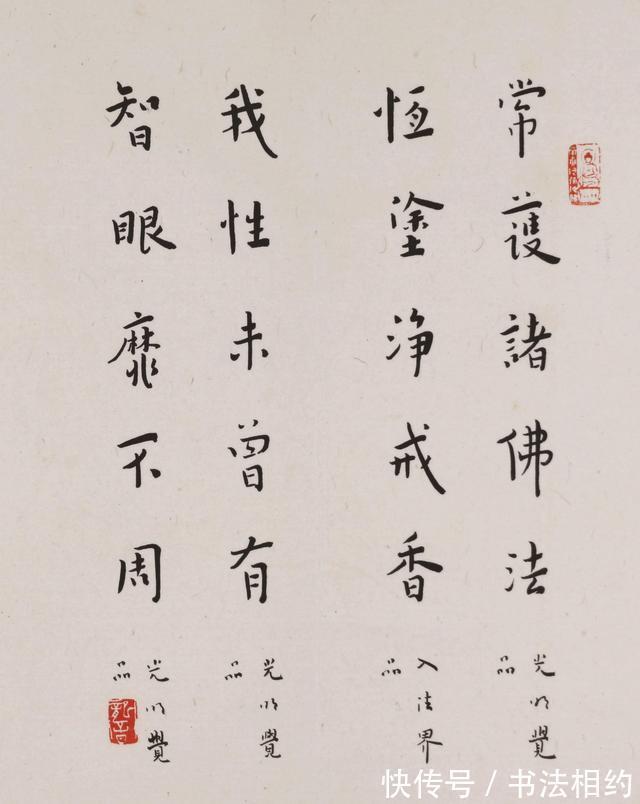 常護諸佛法
光明覺品
恆塗淨戒香
入法界品
我性未曾有
光明覺品
智眼靡不周
光明覺品
快传号/书法相约